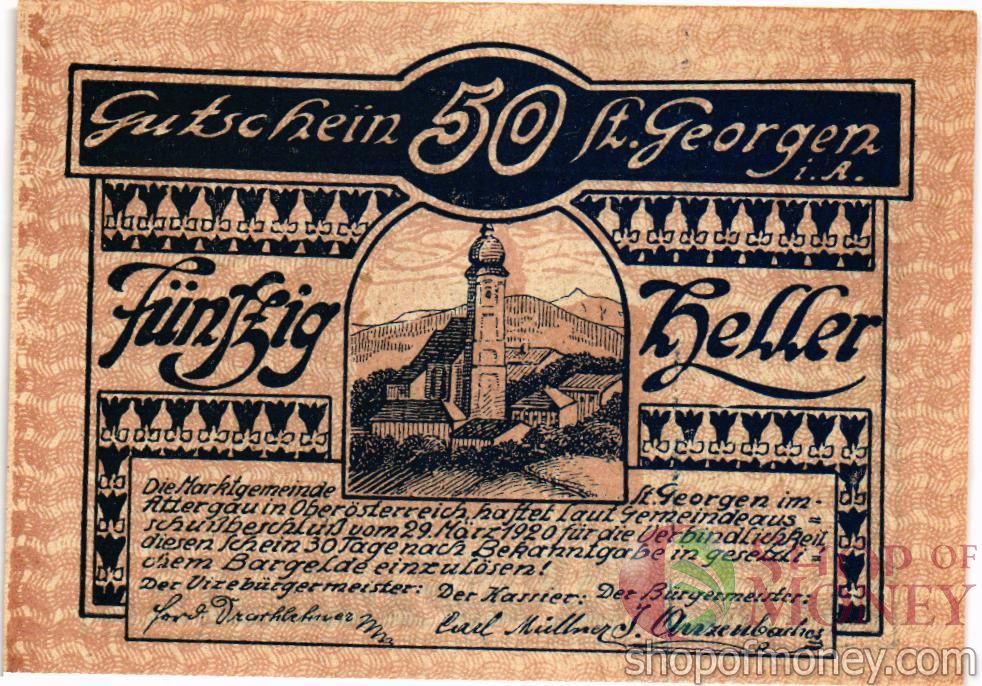 Gutschein 50 St. Georgen
i. A.
Fünfzig Heller
Die Marktgemeinde St. Georgen im-
Attergau in Oberösterreich, haftet laut Gemeindeaus=
schußbeschluß vom 29. März 1920 für die Verbindlichkeit
diesen Schein 30 Tage nach Bekanntgabe in gesetzli=
chem Bargelde einzulösen!
Der Vizebürgermeister: Der Kassier: Der Bürgermeister:
Ferd. Carl Müllner J.
SHOP OF
MONEY
shopofmoney.com